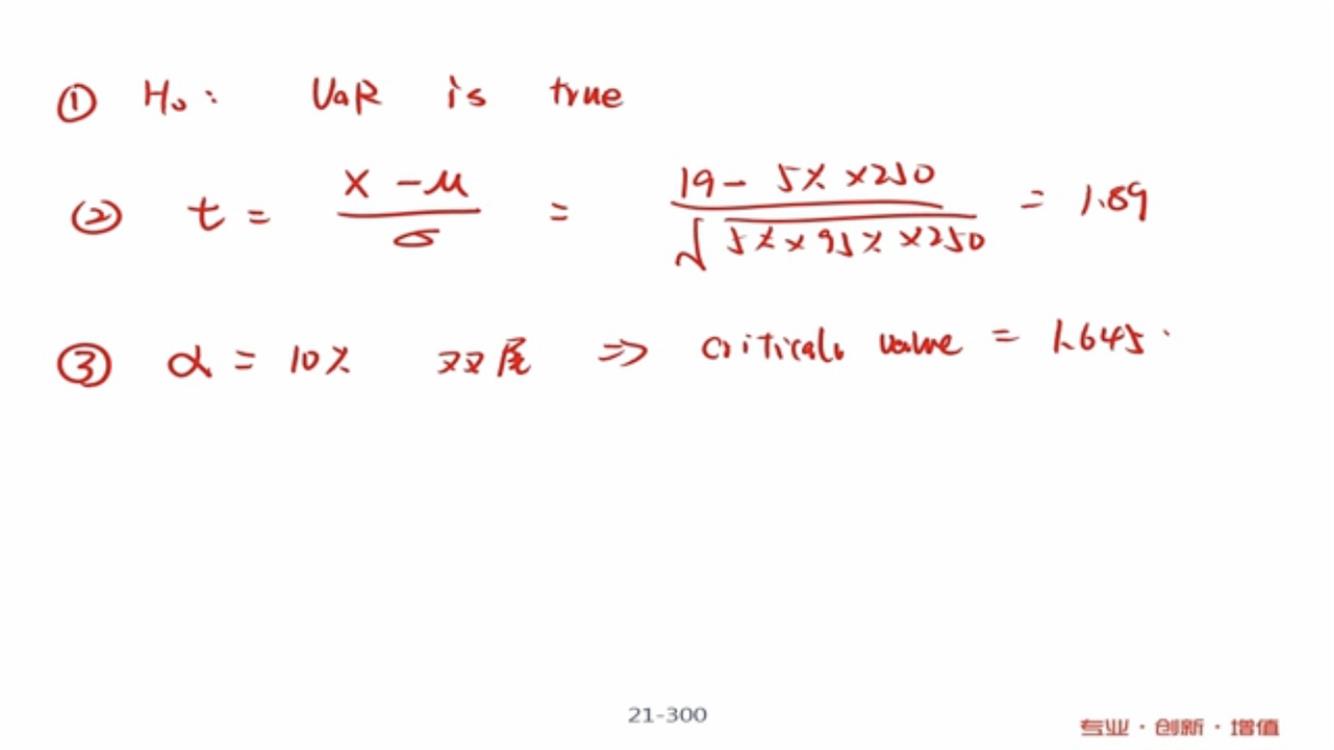 ① H₀: VaR is true
② t = (x - μ) / σ = (19 - 5% × 250) / √(5% × 95% × 250) = 1.89
③ α = 10% 双尾 ⇒ critical value = 1.645.
21-300
专业·创新·增值